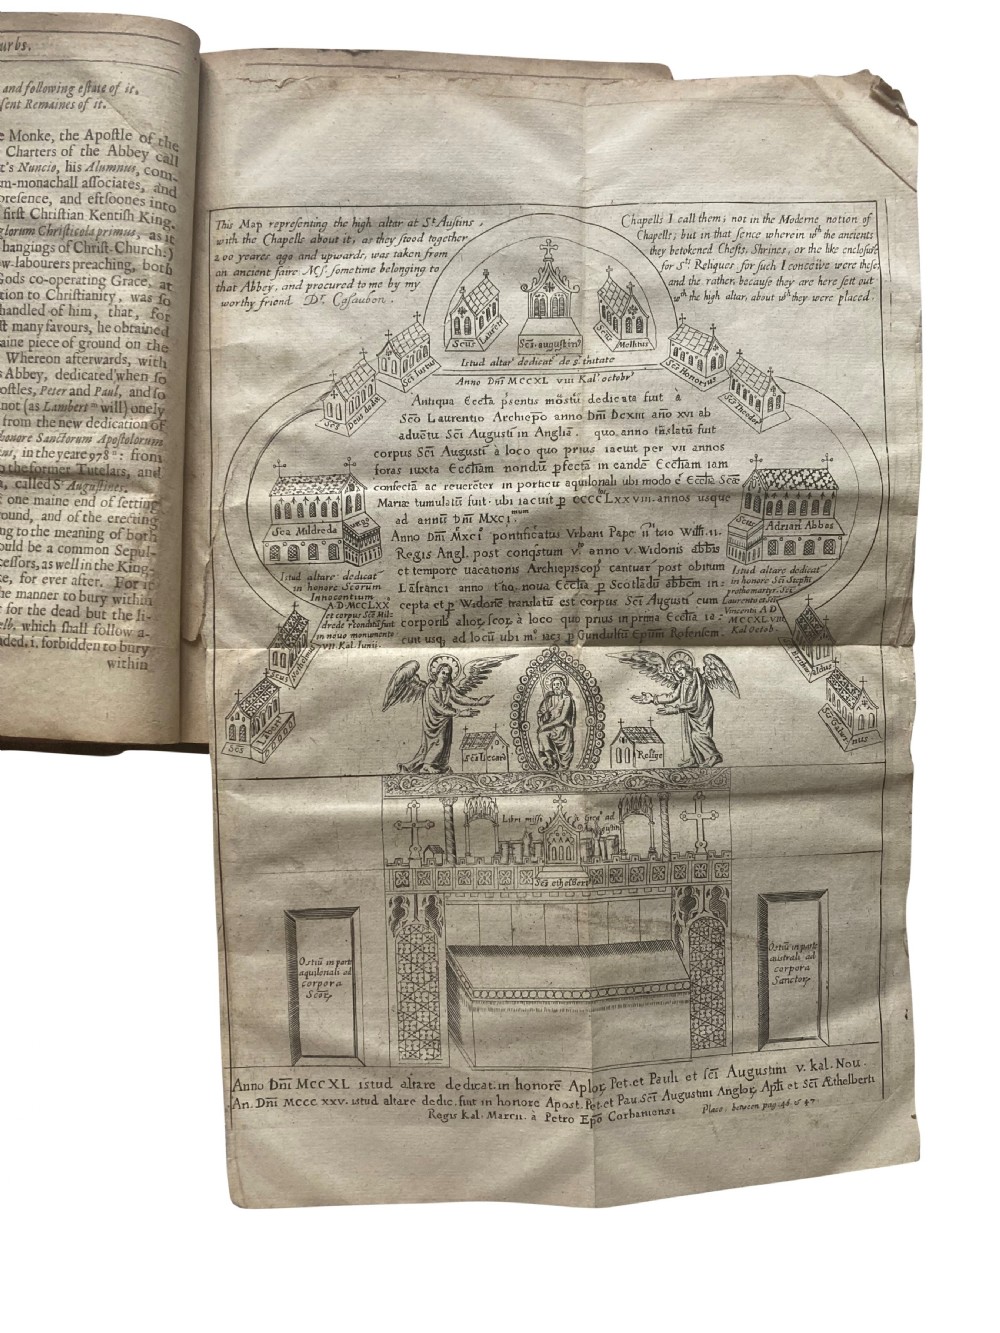 urbs.
and following estate of it.
sent Remaines of it.
e Monke, the Apostle of the
Charters of the Abbey call
t's Nuncio, his Alumnus, com-
m-monachall associates, and
presence, and eftsoones into
first Christian Kentish King.
glorum Christicola primus, as it
hangings of Christ-Church:)
w-labourers preaching, both
Gods co-operating Grace, at
tion to Christianity, was so
handled of him, that, for
st many favours, he obtained
aine piece of ground on the
Whereon afterwards, with
s Abbey, dedicated when so
ostles, Peter and Paul, and so
not (as Lambert will) onely
from the new dedication of
honore Sanctorum Apostolorum
us, in the yeare 978: from
o the former Tutelars, and
a, called St Augustines.
t one maine end of setting
round, and of the erecting
ng to the meaning of both
ould be a common Sepul-
cessors, as well in the King-
e, for ever after. For it
he manner to bury within
for the dead but the li-
elb, which shall follow a-
aded. i. forbidden to bury
within
This Map representing the high altar at St Austins,
with the Chapells about it, as they stood together
200 yeares ago and upwards, was taken from
an ancient faire Ms. sometime belonging to
that Abbey, and procured to me by my
worthy friend Dr. Casaubon.
Chapells I call them; not in the Moderne notion of
Chapells; but in that sence wherein wth the ancients
they betokened Chests, Shrines, or the like enclosure
for Sts Reliques for such I conceive were these,
and the rather, because they are here sett out
wth the high altar, about wch they were placed.
Scus Laurēt
Scs. augustin9
Scus Mellitus
Istud altar' dedicat' de s. trinitate
Anno Dni MCCXL VIII Kal' octobr'
Scs Iustus
Scs Deus dedit
Scs Honorius
Scs Theodor9
Antiqua Eccła psentis mostii dedicata fuit à
Scō Laurentio Archiepō anno Dni DCXIII año XVI ab
advētu Scī Augusti in Angliā. quo anno trāslatū fuit
corpus Scī Augusti à loco quo prius iacuit per VII annos
foras iuxta Eccłiam nondū pfectā in eandē Eccłiam iam
consectā ac reverēter in porticu aquilonali ubi modo ē Eccłia Scæ
Mariæ tumulatū fuit. ubi iacuit p CCCCLXXVIII. annos usque
ad annū Dni MXCI.mum
Anno Dni MXCI pontificatus Vrbani Pape II tercio Willi. II.
Regis Angl. post conqstum vo anno v. Widonis abbis
et tempore vacationis Archiepiscop' cantuar' post obitum
Lāfranci anno tho. nova Eccłia p Scotlādū abbem in:
cepta et p Widonē translatū est corpus Scī Augusti cum
corporib' alior, scor, à loco quo prius in prima Eccłia ia:
cuit usq, ad locū ubi mo iacj p Gundulfū Epum Rofensem.
Sca Mildreda
virgo
Istud altare dedicat'
in honore Scorum
Innocentium
A.D. MCCLXX
et corpus Scē Mil-
drede rcōditū fuit
in novo monumento
VII Kal. Junii.
Scus
Adrian Abbas
Istud altare dedicat'
in honore Scī Stephi
prothomartyr. Scī
Laurentii et Scī
Vincentii A D
MCCXLVIII
Kal Octob.
Scus Nothelmus
Scs
Brithwaldus
Scs Tatwinus
Scs Liccard
Relige
Libri missi à Greg. ad
Augustin
Scs ethelbert
Ostiū in parte
aquilonali ad
corpora
Scor,
Ostiū in parte
australi ad
corpora
Sanctor,
Anno Dni MCCXL istud altare dedicat. in honorē Aplor, Pet. et Pauli et scī Augustini v. kal. Nou.
An. Dni MCCCXXV. istud altare dedic. fuit in honore Apost. Pet. et Pau. Scī Augustini Anglor, Apli et Scī Æthelberti
Regis Kal. Marcii. à Petro Epō Corbaniensi
Place between pag. 46. & 47.